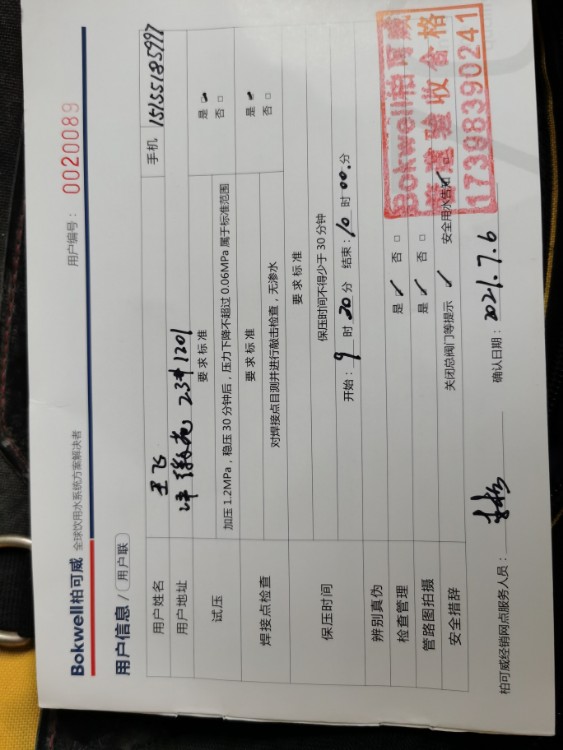 Bokwell柏可威 全球饮用水系统方案解决者
用户编号：0020089
用户信息/用户联
用户姓名 王飞 手机 15155185997
用户地址 23#1201
试压 要求标准 是 ✓ 否 □
加压1.2MPa，稳压30分钟后，压力下降不超过0.06MPa属于标准范围
焊接点检查 要求标准 是 ✓ 否 □
对焊接点目测并进行敲击检查，无渗水
保压时间 要求标准
保压时间不得少于30分钟
开始：9时20分 结束：10时00分
辨别真伪
检查管理 是 ✓ 否 □
管路图拍摄 是 ✓ 否 □
安全措辞 关闭总阀门等提示 ✓ 安全用水告知 ✓
柏可威经销网点服务人员：
确认日期：2021.7.6
Bokwell柏可威
验收合格
17398390241